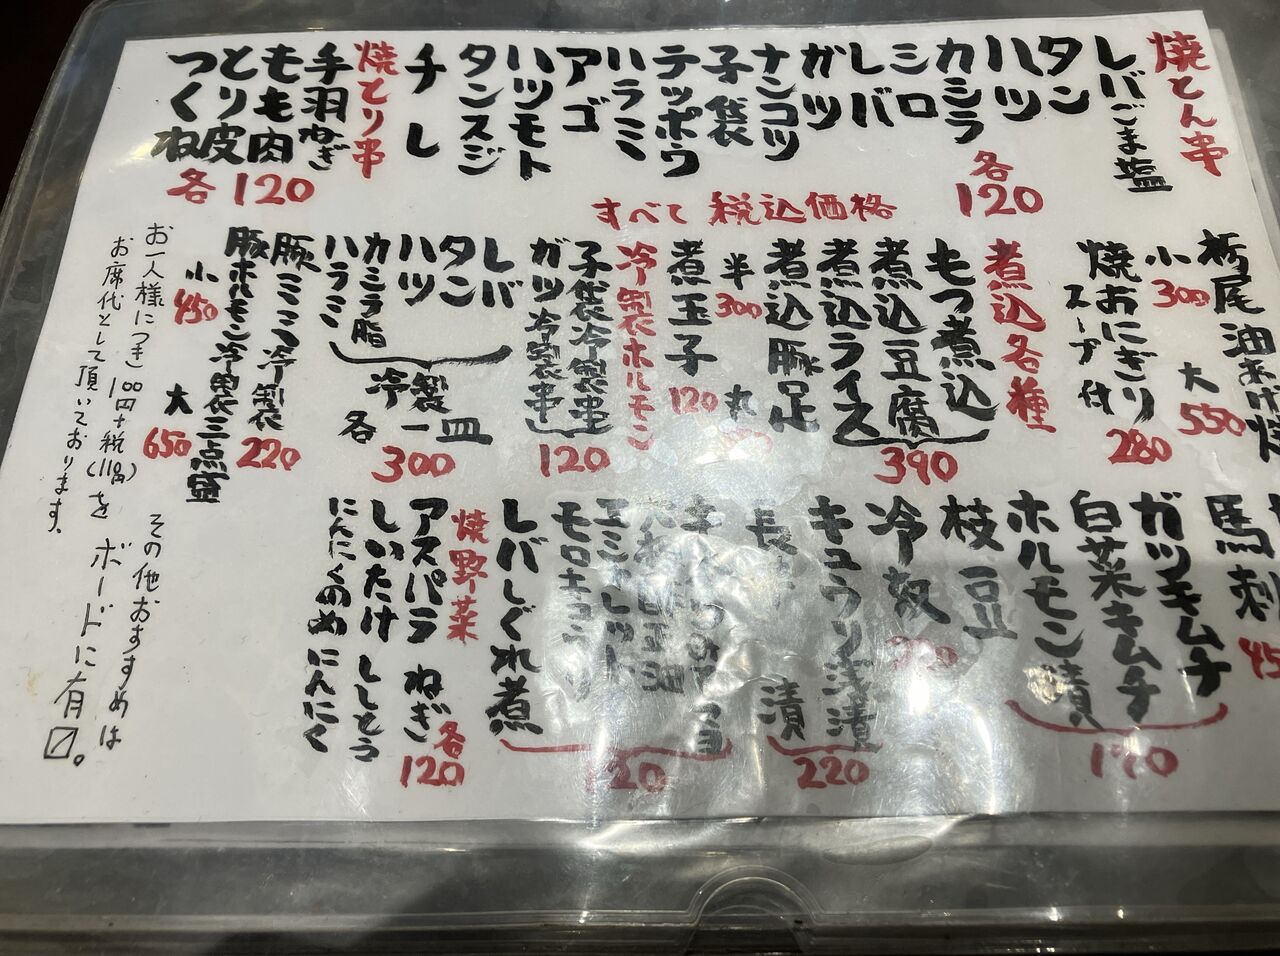 焼とん串
レバごま塩
タン
ハツ
カシラ
シロ
レバ
ガツ
ナンコツ
子袋
テッポウ
ハラミ
アゴ
ハツモト
タンスジ
チレ
各120
焼とり串
手羽ねぎ
もも肉
とり皮
つくね
各120
すべて税込価格
栃尾油あげ焼
小300
大550
焼おにぎり
スープ付
280
煮込各種
もつ煮込
煮込豆腐
煮込ライス
390
煮込豚足
半300
丸
煮玉子
120
冷製ホルモン
子袋冷製串
ガツ冷製串
120
レバ
タン
ハツ
カシラ脂
ハラミ
冷製一皿
各300
豚ミミ冷製
220
豚ホルモン冷製三点盛
小450
大650
馬刺
ガツキムチ
白菜キムチ
ホルモン漬
190
枝豆
冷奴
キュウリ浅漬
長 漬
220
レバしぐれ煮
120
焼野菜
アスパラ ねぎ
しいたけ ししとう
にんにくのめ にんにく
各120
お一人様につき100円+税(110円)を
お席代として頂いております。
その他おすすめは
ボードに有〼。